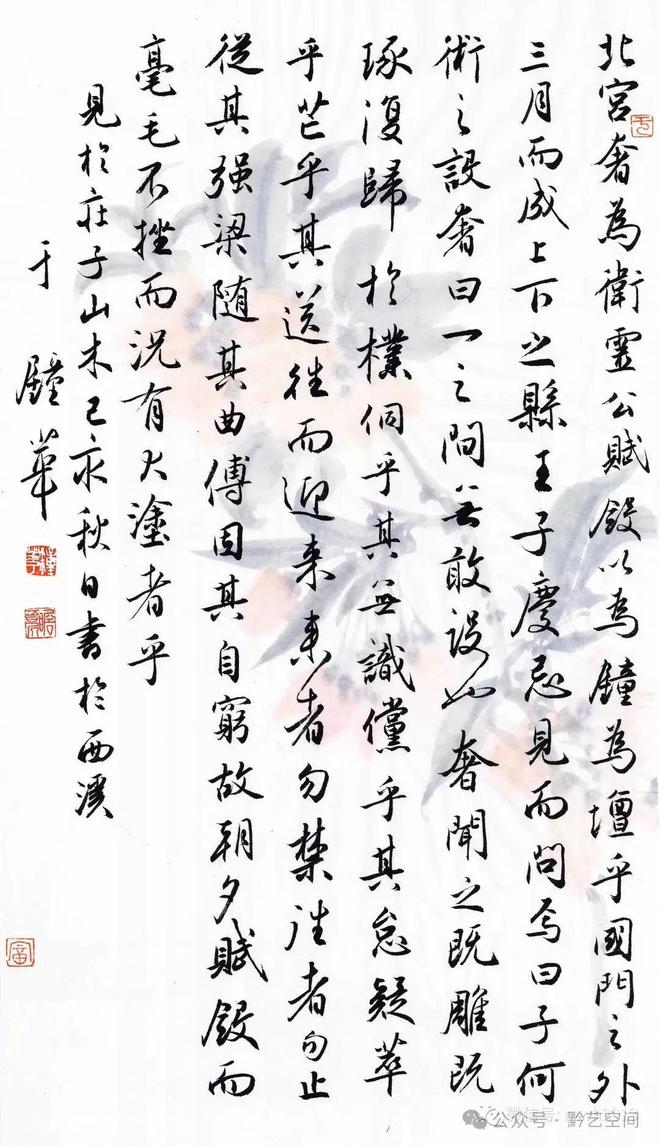 北宮奢為衛靈公賦斂以為鐘為壇乎國門之外
三月而成上下之縣王子慶忌見而問焉曰子何
術之設奢曰一之間無敢設也奢聞之既雕既
琢復歸於樸侗乎其無識儻乎其怠疑萃
乎芒乎其送往而迎来来者勿禁往者勿止
從其强梁随其曲傅因其自窮故朝夕賦斂而
毫毛不挫而況有大塗者乎
見於莊子山木己亥秋日书於西溪
于鐘華
公众号·黔艺空间